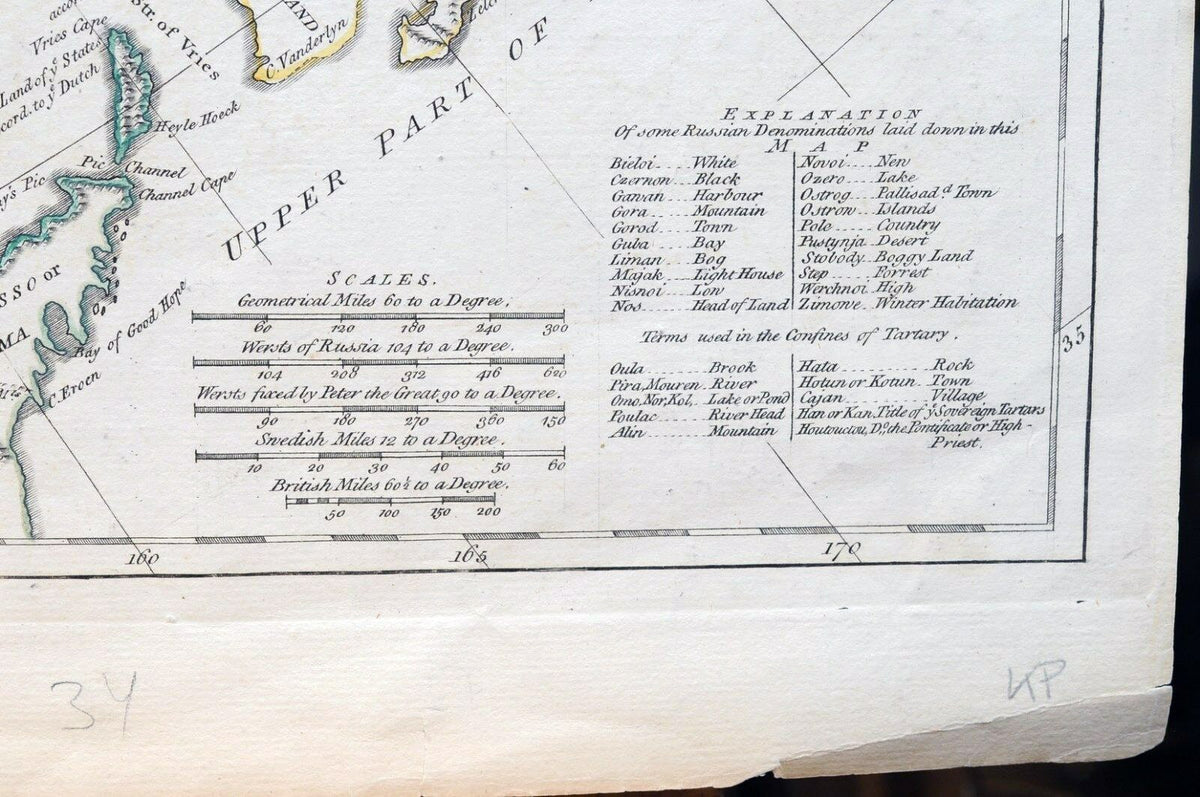 Vries Cape
Land of yͤ States
cord. to yͤ Dutch
Str. of Vries
AND
C. Vanderlyn
Heyle Hoeck
Pic
Channel
Channel Cape
y's Pic
UPPER PART OF
SSO or
MA
Bay of Good Hope
C. Eroen
SCALES.
Geometrical Miles 60 to a Degree.
60 120 180 240 300
Wersts of Russia 104 to a Degree.
104 208 312 416 620
Wersts fixed by Peter the Great 90 to a Degree.
90 180 270 360 450
Swedish Miles 12 to a Degree.
10 20 30 40 50 60
British Miles 60½ to a Degree.
50 100 150 200
EXPLANATION
Of some Russian Denominations laid down in this
MAP
Bieloi....White
Czernon...Black
Gawan....Harbour
Gora.....Mountain
Gorod....Town
Guba.....Bay
Liman....Bog
Majak....Light House
Nisnoi...Low
Nos......Head of Land
Novoi....New
Ozero....Lake
Ostrog...Pallisad.ᵈ Town
Ostrow...Islands
Pole.....Country
Pustynja..Desert
Stobody..Boggy Land
Step.....Forrest
Werchnoi.High
Zimowe..Winter Habitation
Terms used in the Confines of Tartary.
Oula.......Brook
Pira, Mouren..River
Omo, Nor, Kol,..Lake or Pond
Foulac......River Head
Alin.......Mountain
Hata.........Rock
Hotun or Kotun..Town
Cajan........Village
Han or Kan, Title of yͤ Sovereign Tartars
Houtouctou, D.º, the Pontificate or High-
Priest.
35
160 165 170
34
KP